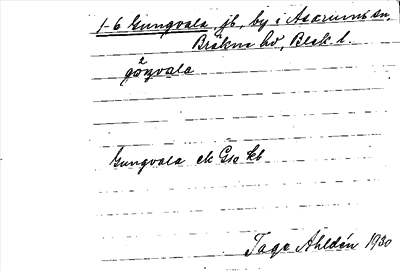 1-6 Gungvala jb, by i Asarums sn,
Bräkne hd, Blek. l.
Gungvala ek G10 kb
Tage Ahldén 1930